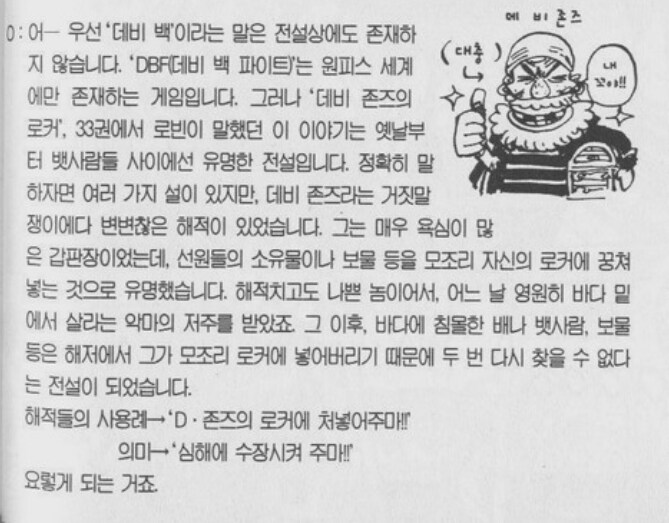 데 비 존즈
(대충)
내
꼬야!!
O : 어— 우선 '데비 백'이라는 말은 전설상에도 존재하
지 않습니다. 'DBF(데비 백 파이트)'는 원피스 세계
에만 존재하는 게임입니다. 그러나 '데비 존즈의
로커', 33권에서 로빈이 말했던 이 이야기는 옛날부
터 뱃사람들 사이에선 유명한 전설입니다. 정확히 말
하자면 여러 가지 설이 있지만, 데비 존즈라는 거짓말
쟁이에다 변변찮은 해적이 있었습니다. 그는 매우 욕심이 많
은 갑판장이었는데, 선원들의 소유물이나 보물 등을 모조리 자신의 로커에 꿍쳐
넣는 것으로 유명했습니다. 해적치고도 나쁜 놈이어서, 어느 날 영원히 바다 밑
에서 살라는 악마의 저주를 받았죠. 그 이후, 바다에 침몰한 배나 뱃사람, 보물
등은 해저에서 그가 모조리 로커에 넣어버리기 때문에 두 번 다시 찾을 수 없다
는 전설이 되었습니다.
해적들의 사용례→'D · 존즈의 로커에 처넣어주마!!'
의미→'심해에 수장시켜 주마!!'
요렇게 되는 거죠.